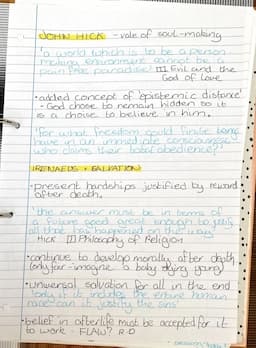 JOHN HICK - vale of soul-making
'a world which is to be a person
making environment cannot be a
pain free paradise' [1] Evil and the
God of Love
•added concept of 'epistemic distance'
- God chose to remain hidden so it
is a choice to believe in him.
'For what freedom could finite beings
have in an immediate consciousness
who claims their total obedience?'
IRENAEUS + SALVATION
•present hardships justified by reward
after death.
'the answer must be in terms of
a future good great enough to justify
all that has happened on the way'
HICK [1] Philosophy of Religion
•continue to develop morally after death
(only fair - imagine a baby dying young)
•universal salvation for all in the end
'only if it includes the entire human
race can it justify the sins'
•belief in afterlife must be accepted for it
to work - FLAW? R-D